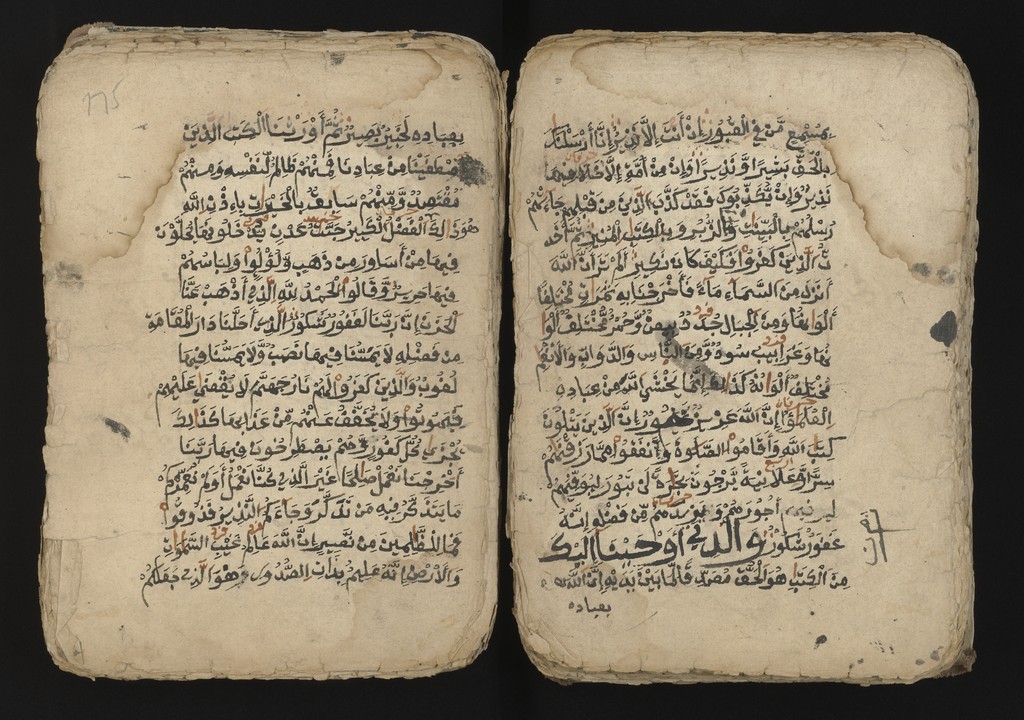 بمسمع من في القبور إن أنت إلا نذير إنا أرسلنك
بالحق بشيرا ونذيرا وإن من أمة إلا خلا فيها
نذير وإن يكذبوك فقد كذب الذين من قبلهم جاءتهم
رسلهم بالبينت وبالزبر وبالكتب المنير ثم أخذ
ت الذين كفروا فكيف كان نكير ألم تر أن الله
أنزل من السماء ماء فأخرجنا به ثمرت مختلفا
ألوانها ومن الجبال جدد بيض وحمر مختلف ألوا
نها وغرابيب سود ومن الناس والدواب والأنعم
مختلف ألوانه كذلك إنما يخشى الله من عباده
العلمؤا إن الله عزيز غفور إن الذين يتلون
كتب الله وأقاموا الصلوة وأنفقوا مما رزقنهم
سرا وعلانية يرجون تجرة لن تبور ليوفيهم
أجورهم ويزيدهم من فضله إنه
غفور شكور والذي أوحينا إليك
من الكتب هو الحق مصدقا لما بين يديه إن الله
بعباده
175
بعباده لخبير بصير ثم أورثنا الكتب الذين
اصطفينا من عبادنا فمنهم ظالم لنفسه ومنهم
مقتصد ومنهم سابق بالخيرات بإذن الله
هو ذلك الفضل الكبير جنت عدن يدخلونها يحلون
فيها من أساور من ذهب ولؤلؤا ولباسهم
فيها حرير وقالوا الحمد لله الذي أذهب عنا
الحزن إن ربنا لغفور شكور الذي أحلنا دار المقامة
من فضله لا يمسنا فيها نصب ولا يمسنا فيها
لغوب والذين كفروا لهم نار جهنم لا يقضى عليهم
فيموتوا ولا يخفف عنهم من عذابها كذلك
نجزي كل كفور وهم يصطرخون فيها ربنا
أخرجنا نعمل صلحا غير الذي كنا نعمل أولم نعمركم
ما يتذكر فيه من تذكر وجاءكم النذير فذوقوا
فما للظلمين من نصير إن الله علم غيب السموت
والأرض إنه عليم بذات الصدور هو الذي جعلكم